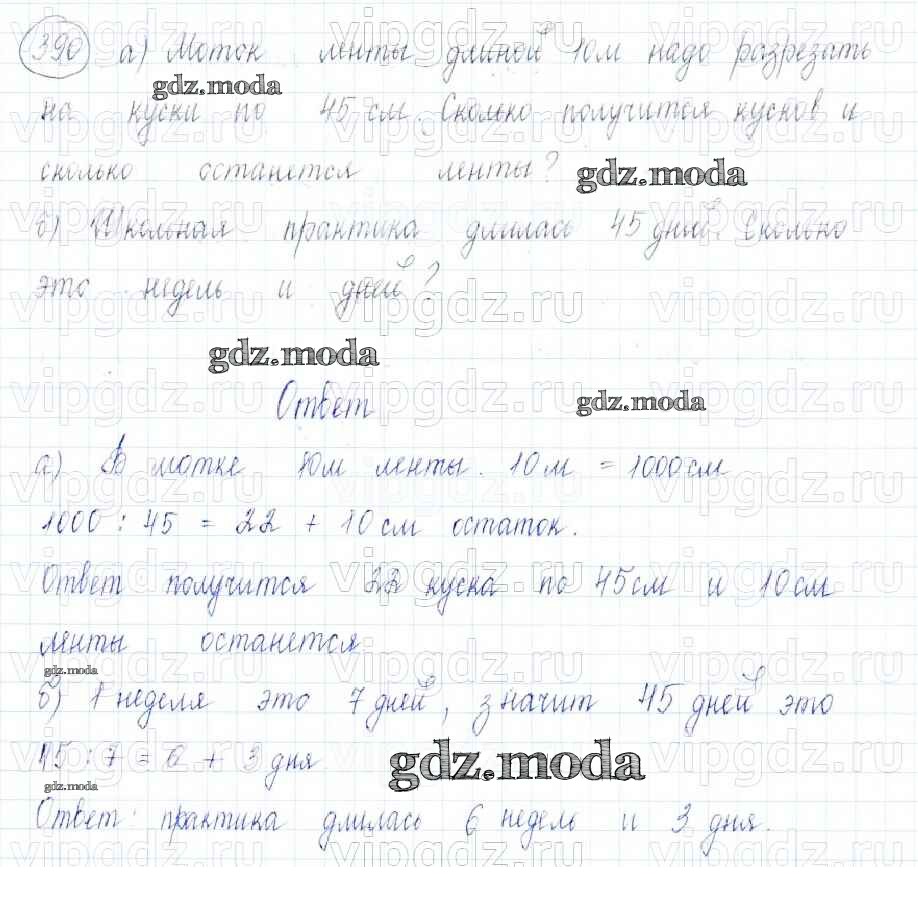 390 а) Моток ленты длиной 10м надо разрезать
gdz.moda
на куски по 45 см. Сколько получится кусков и
сколько останется ленты?
gdz.moda
б) Школьная практика длилась 45 дней. Сколько
это недель и дней?
gdz.moda
Ответ
gdz.moda
а) В мотке 10м ленты. 10м = 1000см
1000 : 45 = 22 + 10 см остаток.
Ответ получится 22 куска по 45см и 10см
ленты останется
gdz.moda
б) 1 неделя это 7 дней, значит 45 дней это
45 : 7 = 6 + 3 дня
gdz.moda
gdz.moda
Ответ: практика длилась 6 недель и 3 дня.
vipgdz.ru